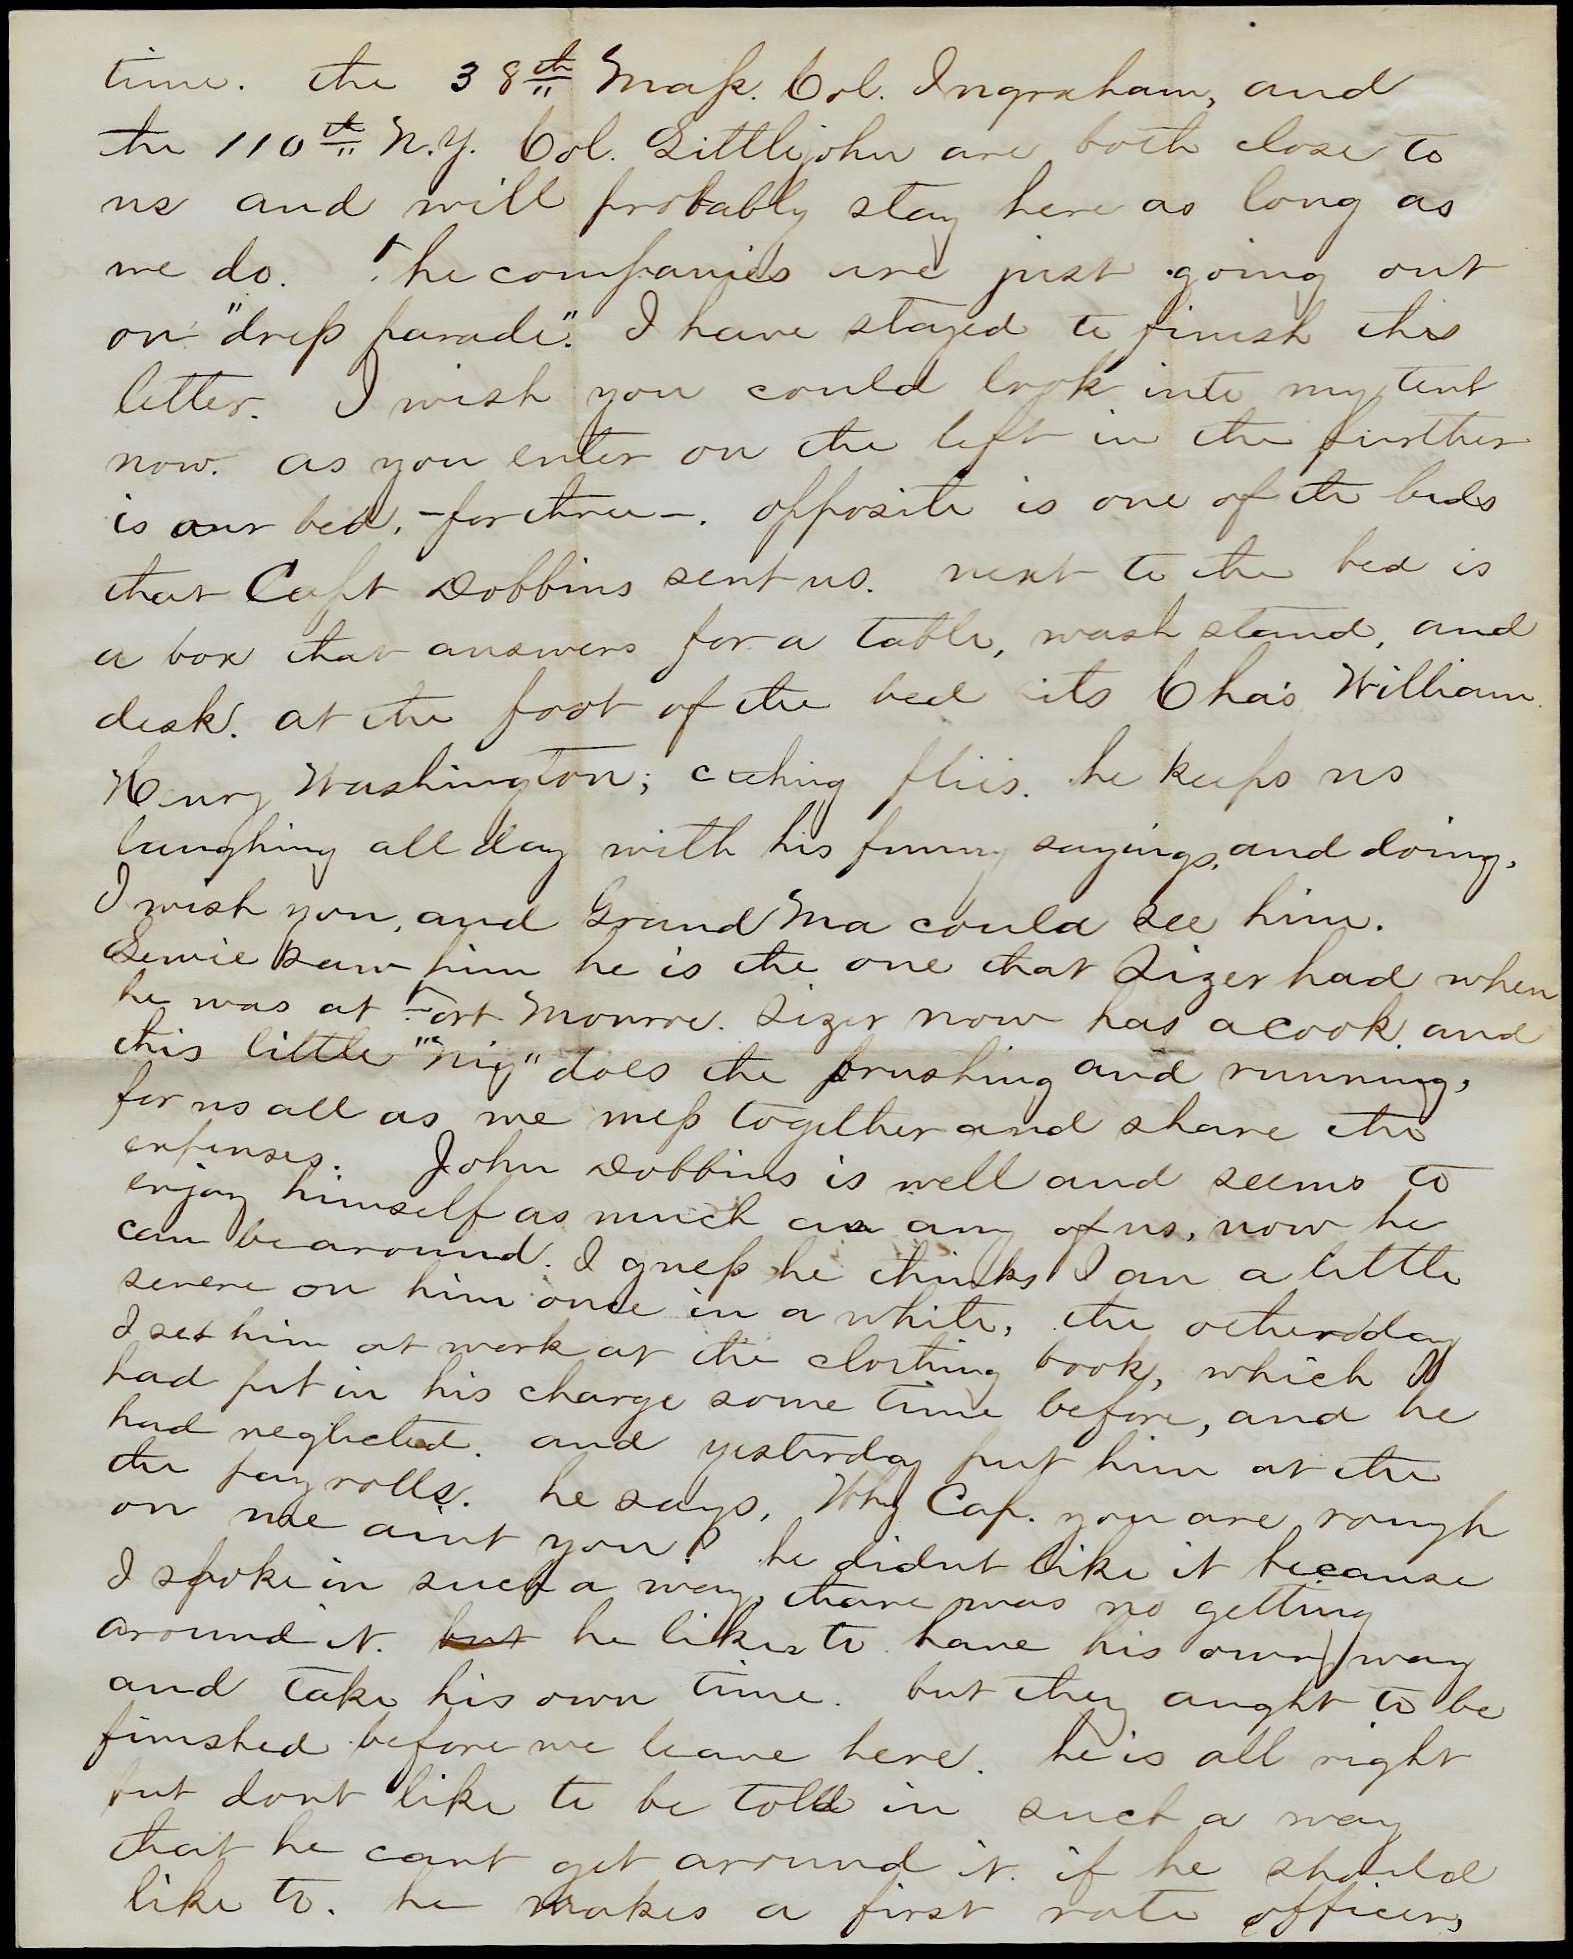 time. the 38th Mass. Col. Ingraham, and
the 110th N.Y. Col. Littlejohn are both close to
us and will probably stay here as long as
we do. The companies are just going out
on "dress parade". I have stayed to finish this
letter. I wish you could look into my tent
now. as you enter on the left in the further
is our bed, -for three-. opposite is one of the beds
that Capt Dobbins sent us. next to the bed is
a box that answers for a table, wash stand, and
desk. at the foot of the bed sits Cha's William
Henry Washington; cetching flies. he keeps us
laughing all day with his funny sayings, and doing.
I wish you, and Grand Ma could see him.
Lewie saw him he is the one that Sizer had when
he was at Fort Monroe. Sizer now has a cook, and
this little "nig" does the brushing and running,
for us all as we mess together and share the
expenses. John Dobbins is well and seems to
enjoy himself as much as any of us, now he
can be around. I guess he thinks I am a little
severe on him once in a white, the other day
I set him at work at the clothing book, which I
had put in his charge some time before, and he
had neglected. and yesterday put him at the
the pay rolls. he says, Why Cap. you are rough
on me aint you? he didnt like it because
I spoke in such a way, thare was no getting
around it. but he likes to have his own way
and take his own time. but they aught to be
finished before we leave here. he is all right
but dont like to be told in such a way
that he cant get around it. if he should
like to. he makes a first rate officer,